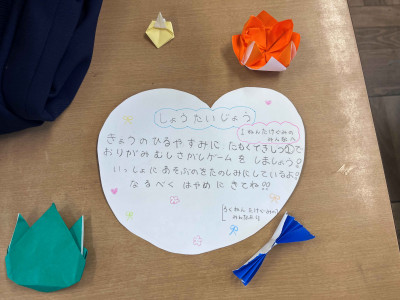 しょうたいじょう
1ねんたけぐみの
みんなへ
きょうのひるやすみに、たもくてきしつ①で
おりがみむしさがしゲームをしましょう?
いっしょにあそぶのをたのしみにしているよ?
なるべくはやめにきてね??
6ねんたけぐみの
みんなより